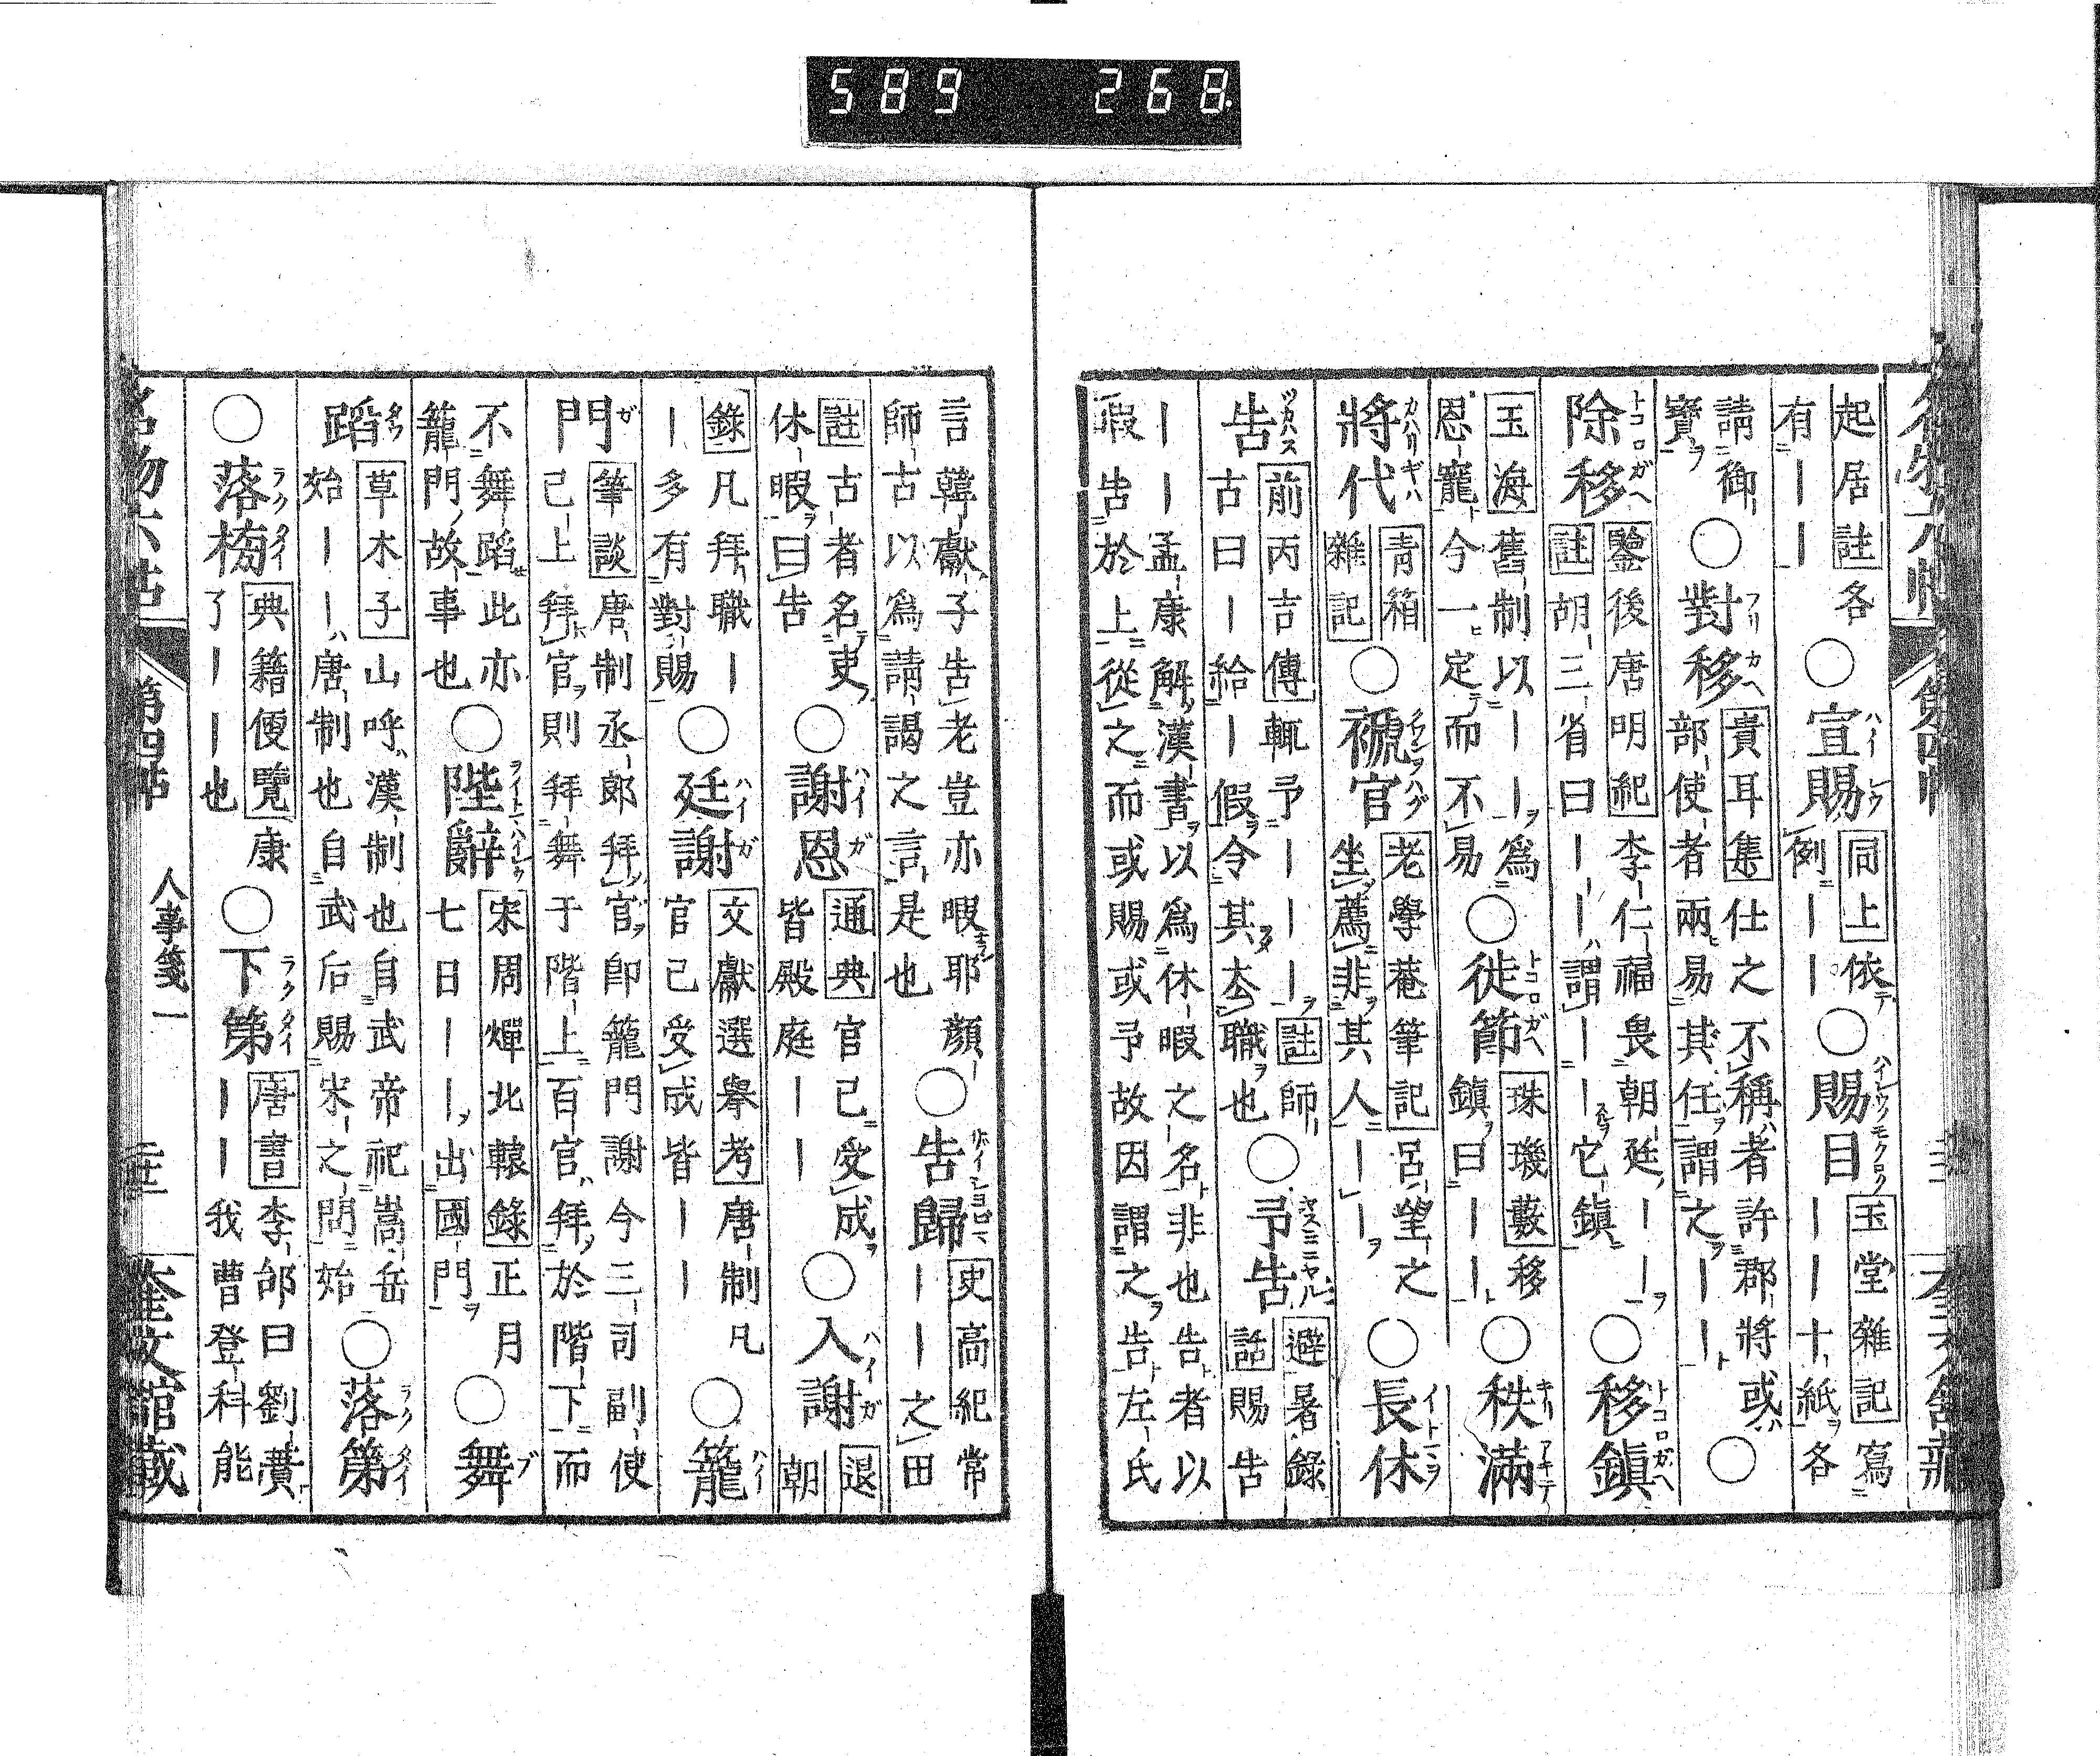 589 268
起居註各
有｜｜
○宣賜
同上依
例｜｜
○賜目
玉堂雜記寫
｜｜｜十紙各
請御
寶
○對移
貴耳集仕之不稱者許郡將或
部使者兩易其任謂之｜｜
○
除移
鑒後唐明紀李仁福畏朝廷｜｜
註胡三省曰｜｜謂｜｜它鎮
○移鎮
玉海舊制以｜｜爲
恩寵今一定而不易
○徙節
珠璣藪移
鎮曰｜｜
○秩滿
將代
青箱
雜記
○褫官
老學菴筆記呂望之
坐薦非其人｜｜
○長休
告
前丙吉傳輒予｜｜｜註師
古曰｜給｜假令其去職也
○予告
避暑錄
話賜告
｜｜孟康解漢書以爲休暇之名非也告者以
暇告於上從之而或賜或予故因謂之告左氏
言韓獻子告老豈亦暇耶顏
師古以爲請謁之言是也
○告歸
史高紀常
｜｜之田
註古者名吏
休暇曰告
○謝恩
通典官已受成
皆殿庭｜｜
○入謝
退
朝
錄凡拜職｜
｜多有對賜
○廷謝
文獻選擧考唐制凡
官已受成皆｜｜
○籠
門
筆談唐制丞郎拜官卽籠門謝今三司副使
已上拜官則拜舞于階上百官拜於階下而
不舞蹈此亦
籠門故事也
○陛辭
宋周煇北轅錄正月
七日｜｜出國門
○舞
蹈
草木子山呼漢制也自武帝祀嵩岳
始｜｜唐制也自武后賜宋之問始
○落第
○落㭸
典籍便覽康
了｜｜也
○下第
唐書李郃曰劉蕡
｜｜我曹登科能
名物六帖 第四帖 人事箋一 奎文館藏